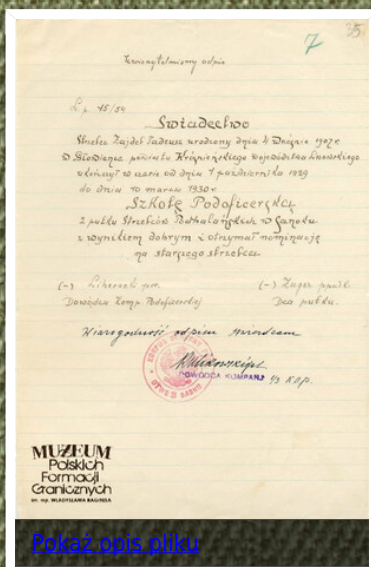 7
35
Uwierzytelniony odpis
L.p. 15/54
Świadectwo
Strzelec Zajdel Tadeusz urodzony dnia 4 Września 1907 r.
powiatu Krośnieńskiego województwa Lwowskiego
ukończył w czasie od dnia 7 października 1929
do dnia 10 marca 1930 r.
Szkołę Podoficerską
2 pułku Strzelców Podhalańskich w Sanoku
z wynikiem dobrym i otrzymał nominację
na starszego strzelca.
(-) por. (-) Zagór ppułk.
Dowódca Komp. Podoficerskiej Dca pułku.
Wiarogodność odpisu stwierdzam
DOWÓDCA KOMPANJI
MUZEUM
Polskich
Formacji
Granicznych
im. mjr. WŁADYSŁAWA RAGINISA
Pokaż opis pliku